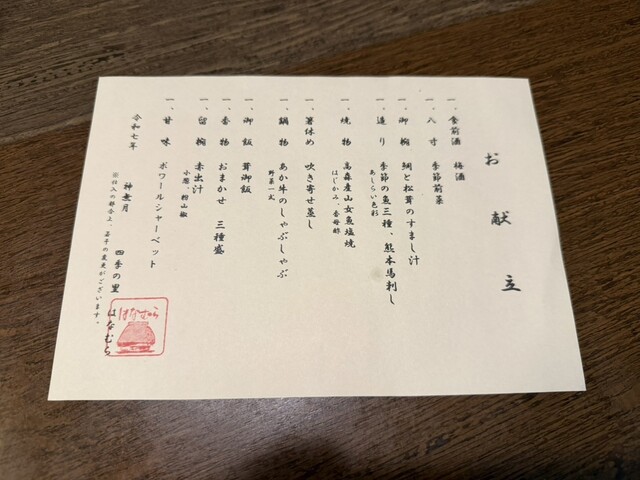 お献立
一、食前酒 梅酒
一、八寸 季節前菜
一、御椀 鯛と松茸のすまし汁
一、造り 季節の魚三種、熊本馬刺し
あしらい色彩
一、焼物 高森産山女魚塩焼
はじかみ、香母酢
一、箸休め 吹き寄せ蒸し
一、鍋物 あか牛のしゃぶしゃぶ
野菜一式
一、御飯 茸御飯
一、香物 おまかせ 三種盛
一、留椀 赤出汁
小葱、粉山椒
一、甘味 ポワールシャーベット
令和七年 神無月 四季の里 はなむら
※仕入の都合上、若干の変更がございます。
はなむら